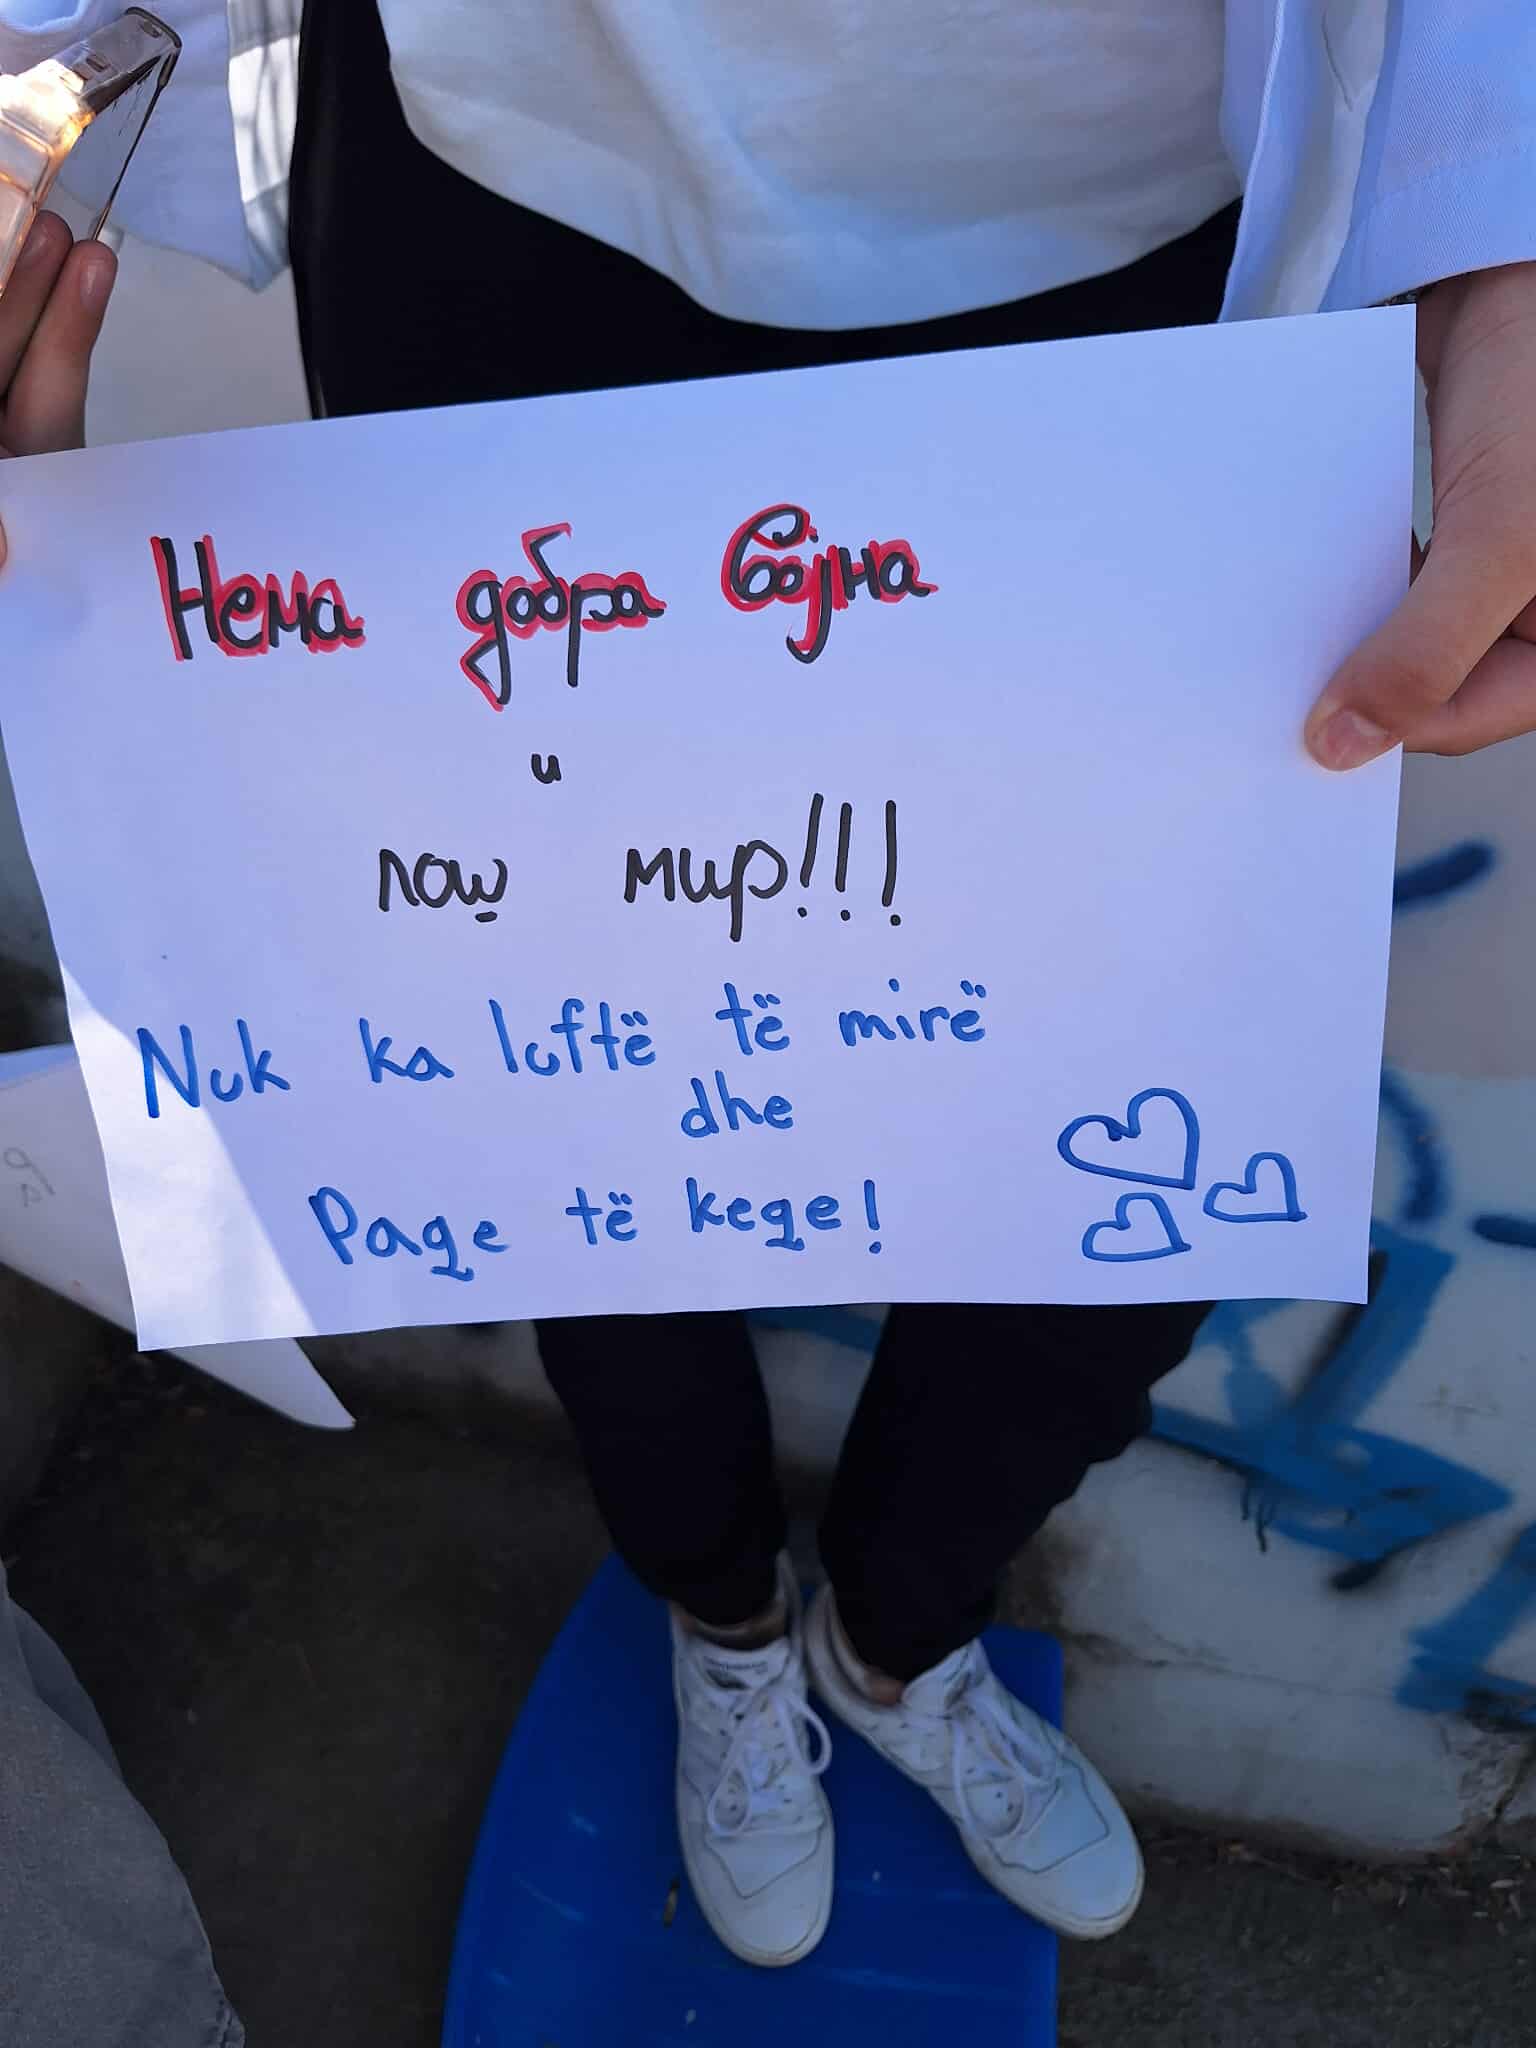 Нема добра војна
и
лош мир!!!
Nuk ka luftë të mirë
dhe
Paqe të keqe!